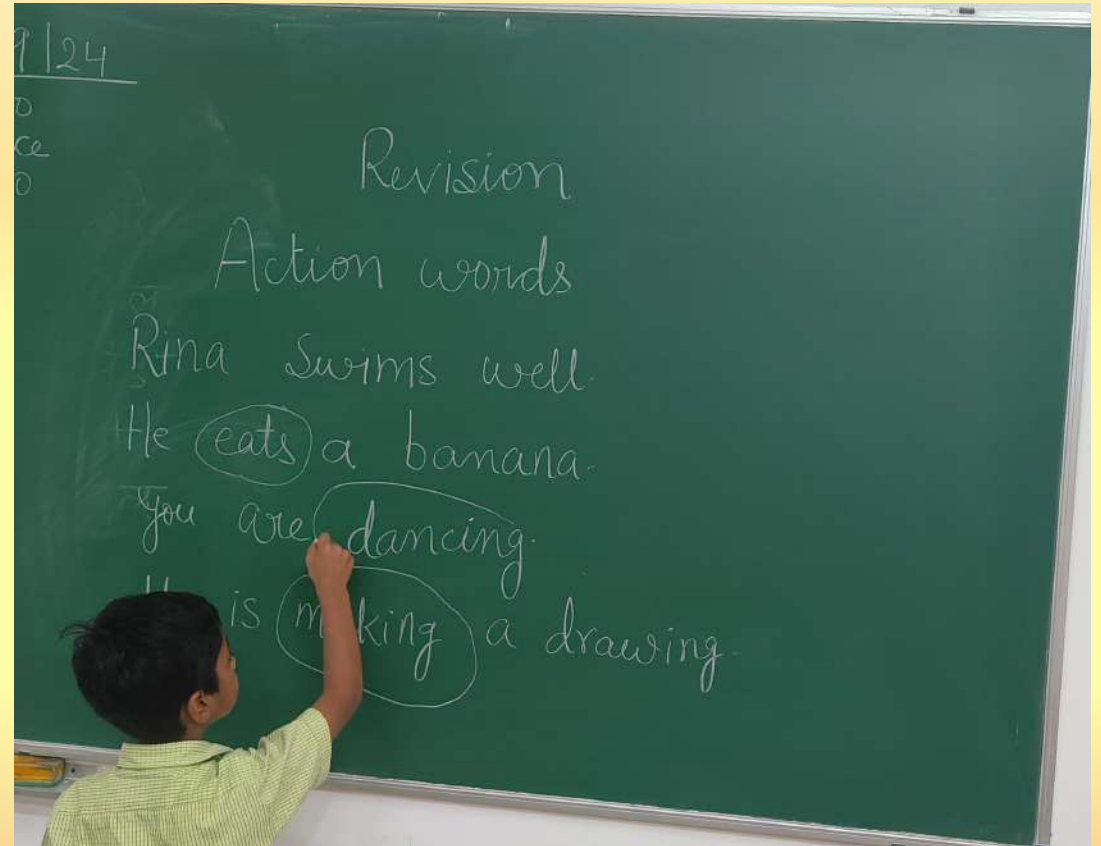 9/24
Revision
Action words
Rina Swims well.
He eats a banana.
You are dancing.
is making a drawing.